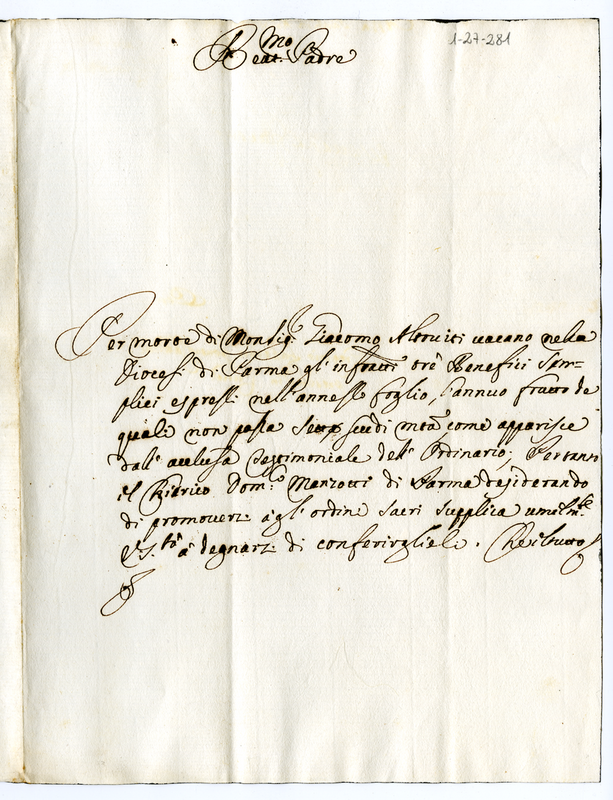 1-27-281
Beat.mo Padre
Per morte di Monsig.r Giacomo Altoviti vacano nella
Diocesi di Parma gl'infratti trè Benefici Sem=
plici espressi nell'annesso foglio, l'annuo frutto de
quali non passa scudi mta come apparisce
dall'acclusa testimoniale dell'Ordinario; Pertanto
il Chierico Dom.co Manzotti di Parma desiderando
di promoversi agl'ordini sacri supplica umilm.te
V. S.tà à degnarsi di conferirglieli. Che il tutto